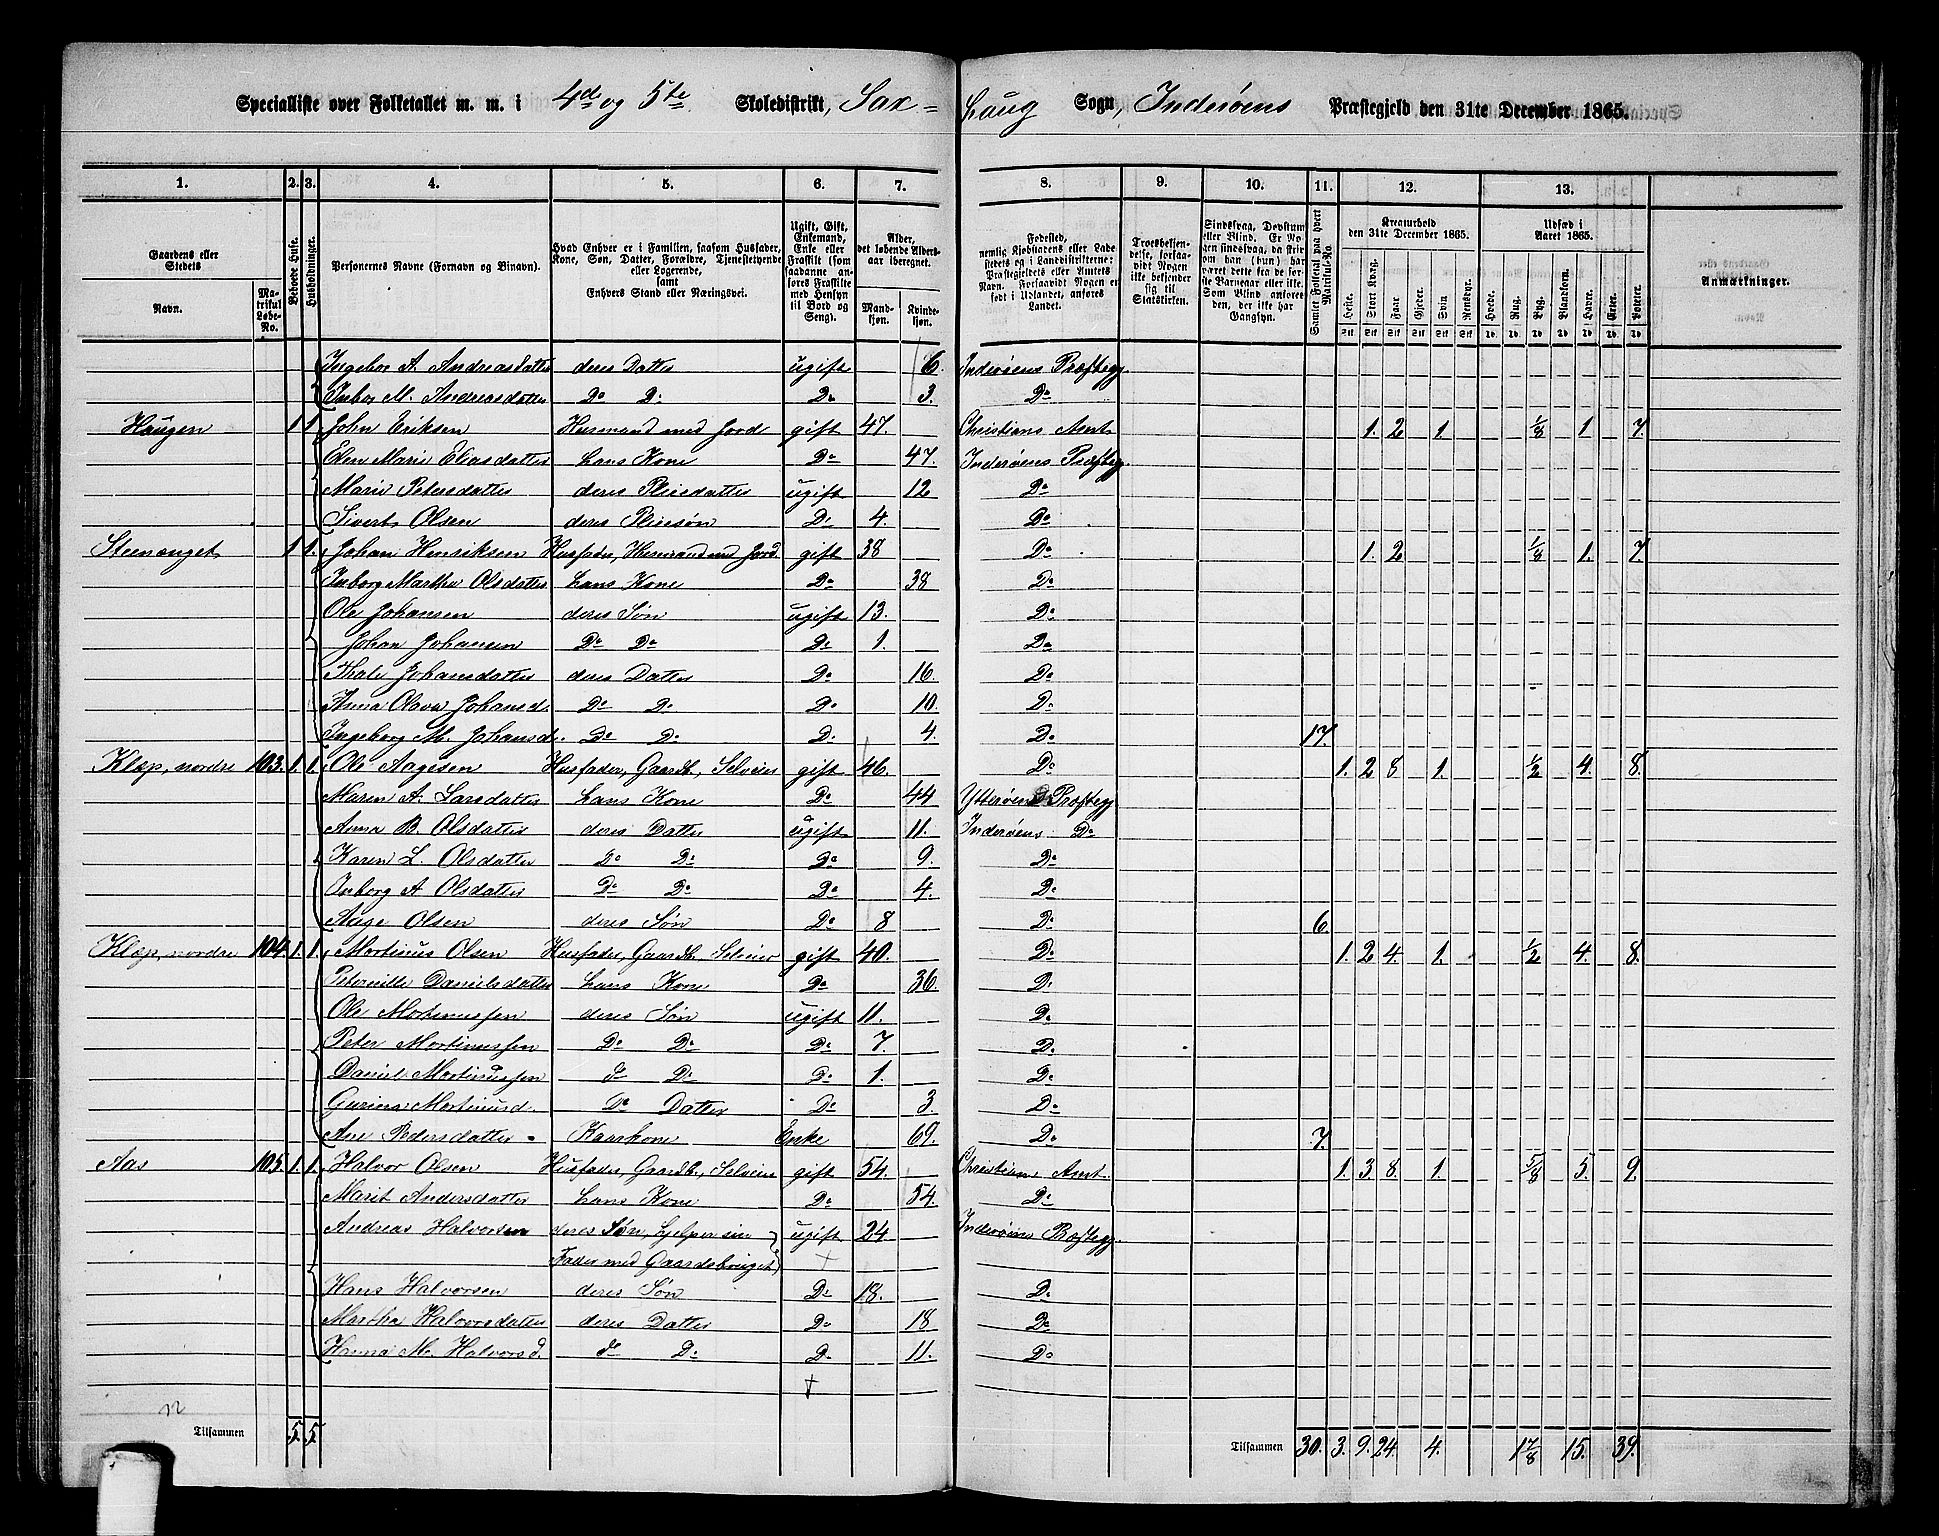 Specialliste over Folketallet m. m. i 4de og 5te Skoledistrikt, Sax= Laug Sogn, Inderøens Præstegjeld den 31te December 1865.
1. 2. 3. 4. 5. 6. 7. 8. 9. 10. 11. 12. 13.
Gaardens eller Stedets Navn. Matrikul Løbe-No. Beboede Huse. Husholdninger. Personernes Navne (Fornavn og Binavn).
Hvad Enhver er i Familien, saasom Husfader, Kone, Søn, Datter, Forældre, Tjenestetyende eller Logerende, samt Enhvers Stand eller Næringsvei.
Ugift, Gift, Enkemand, Enke eller Fraskilt (som saadanne anføres Fraskilte med Hensyn til Bord og Seng).
Alder, det løbende Alders-aar iberegnet. Mandkjøn. Kvindekjøn.
Fødested, nemlig Kjøbstadens eller Ladestedets eller i Landdistrikterne: Præstegjeldets eller Amtets Navn. Forsaavidt Nogen er født i Udlandet, anføres Landet.
Troesbekjendelse, forsaavidt Nogen ikke bekjender sig til Statskirken.
Sindssvag, Døvstum eller Blind. Er Nogen sindssvag, da skrives om han (hun) har været dette før eller efter det fyldte 4de
Samlet Folketal paa hvert Matrikul-No.
Kreaturhold den 31te December 1865. Heste. Stort Kvæg. Faar. Gjeder. Svin. Rensdyr.
Udsæd i Aaret 1865. Hvede. Rug. Byg. Blandkorn. Havre. Erter. Poteter.
Anmærkninger.
Ingebor A. Andreasdatter deres Datter ugift 6. Inderøens Præstegj.
Inbor M. Andreasdatter Do Do Do 3. Do
Haugen 1 1 John Eriksen Husmand med Jord gift 47. Christians Amt 1. 2 1. 1/8 1. 7.
Elen Marie Eliasdatter hans Kone Do 47. Inderøens Præstegj.
Marie Petersdatter deres Pleiedatter ugift 12 Do
Sivert Olsen deres Pleiesøn Do 4. Do
Steenanget 1 1. Johan Henriksen Husfader, Husmand med Jord gift 38 Do 1. 2 1/8 1. 7
Inborg Martha Olsdatter hans Kone Do 38 Do
Ole Johansen deres Søn ugift 13. Do
Johan Johansen Do Do Do 1. Do
Thale Johansdatter deres Datter Do 16 Do
Anna Olava Johansd. Do Do Do 10. Do
Ingeborg M. Johansd. Do Do Do 4. Do 17.
Klæp, nordre 103. 1. 1. Ole Aagesen Husfader, Gaardb., Selveier gift 46. Do 1. 2 8 1. 1/2 4. 8.
Maren A. Larsdatter hans Kone Do 44 Ytterøens Præstegj
Anna B. Olsdatter deres Datter ugift 11. Inderøens Do
Karen L. Olsdatter Do Do Do 9. Do
Inborg A. Olsdatter Do Do Do 4. Do
Aage Olsen deres Søn Do 8 Do 6.
Klæp, nordre 104. 1. 1. Mortinus Olsen Husfader, Gaardb., Selveier gift 40. Do 1. 2 4. 1. 1/2 4. 8.
Peternille Danielsdatter hans Kone Do 36. Do
Ole Mortinussen deres Søn ugift 11. Do
Peter Mortinussen Do Do Do 7. Do
Daniel Mortinussen do Do Do 1. Do
Gurine Mortinusd. Do Datter Do 3. Do
Ane Pedersdatter Kaarkone Enke 69. Do 7.
Aas 105. 1. 1. Halvor Olsen Husfader, Gaardb., Selveier gift 54. Christians Amt. 1. 3 8. 1. 5/8 5. 9.
Marit Andersdatter hans Kone Do 54. Do
Andreas Halvorsen deres Søn, hjelper sin ugift 24 Inderøens Præstegj.
Fader med Gaardsbruget +
Hans Halvorsen deres Søn Do 18. Do
Martha Halvorsdatter deres Datter Do 18 Do
Hanna M. Halvorsd. do Do Do 11. Do
+
Tilsammen 5. 5. Tilsammen 30. 3. 9. 24. 4. 1 7/8 15. 39.